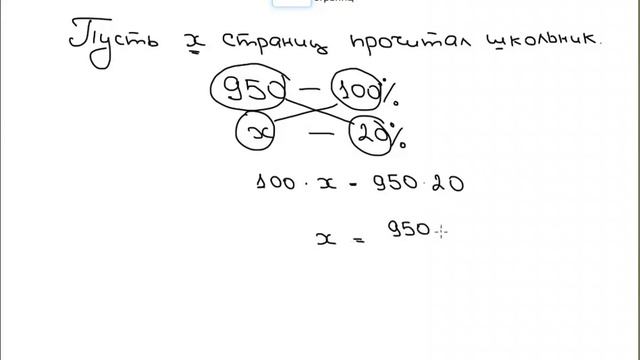 Пусть x страниц прочитал школьник.
950 – 100%
x – 20%
100 · x = 950 · 20
x = 950